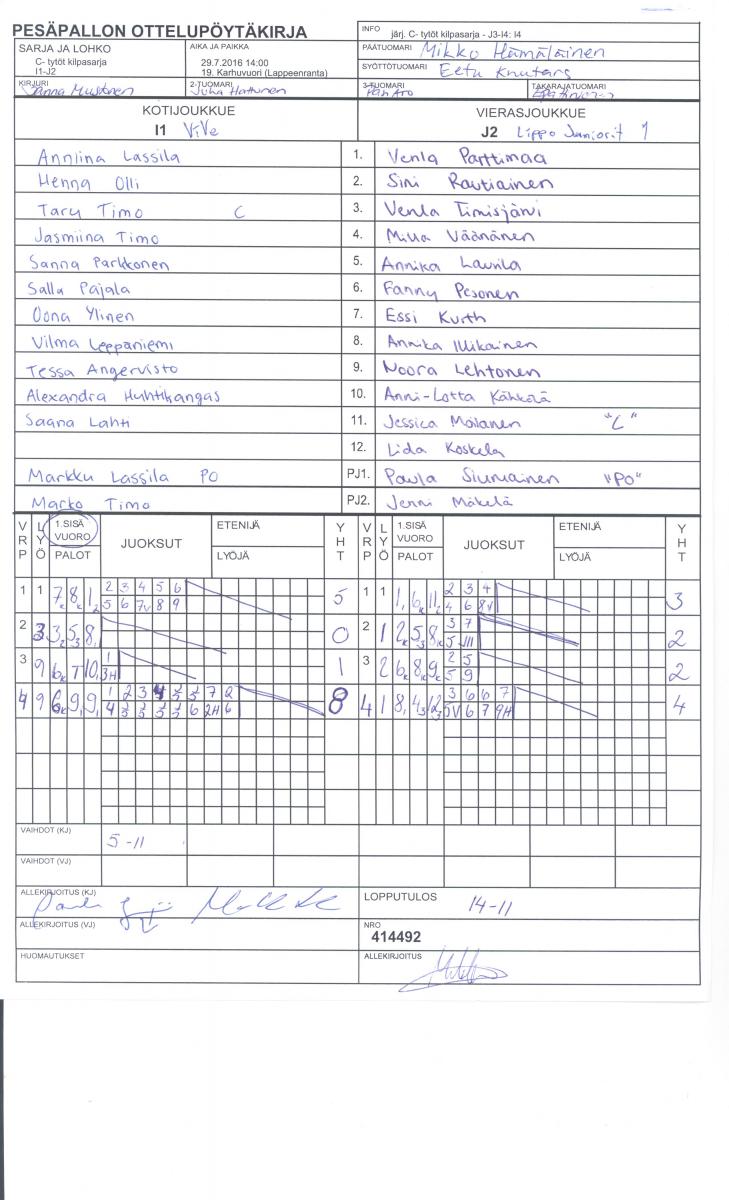 PESÄPALLON OTTELUPÖYTÄKIRJA
INFO järj. C- tytöt kilpasarja - J3-I4: I4
SARJA JA LOHKO
C- tytöt kilpasarja
I1-J2
AIKA JA PAIKKA
29.7.2016 14:00
19. Karhuvuori (Lappeenranta)
PÄÄTUOMARI Mikko Hämäläinen
SYÖTTÖTUOMARI Eetu Knutars
KIRJURI Janna Mustonen
2-TUOMARI Juha Hattunen
3-TUOMARI
TAKARAJATUOMARI
KOTIJOUKKUE
I1 ViVe
VIERASJOUKKUE
J2 Lippo Juniorit 1
Anniina Lassila 1. Venla Parttimaa
Henna Olli 2. Sini Rautiainen
Taru Timo C 3. Venla Timisjärvi
Jasmiina Timo 4. Milla Väänänen
Sanna Parkkonen 5. Annika Laurila
Salla Pajala 6. Fanny Pesonen
Oona Ylinen 7. Essi Kurth
Vilma Leppäniemi 8. Annika Illikainen
Tessa Angervisto 9. Noora Lehtonen
Alexandra Huhtikangas 10. Anni-Lotta Kähkölä
Saana Lahti 11. Jessica Moilanen "C"
12. Lida Koskela
Markku Lassila PO PJ1. Paula Siuruainen "PO"
Marko Timo PJ2. Jenni Mäkelä
VRP LYÖ 1.SISÄ VUORO PALOT JUOKSUT ETENIJÄ LYÖJÄ YHT VRP LYÖ 1.SISÄ VUORO PALOT JUOKSUT ETENIJÄ LYÖJÄ YHT
1 1 7K 8K 12 2 3 4 5 6 5 1 1 11 6K 112 2 3 4 3
5 6 7V 8 9 4 6 8V
2 3 32 53 81 0 2 1 2K 53 8K 3 7 2
3 9 6K T 10 1 1 3 2 6K 8K 9K 2 5 2
3H 5 9
4 9 6K 91 91 8 4 1 81 43 123 3 6 6 7 4
5V 6 7 9H
VAIHDOT (KJ) 5-11
VAIHDOT (VJ)
ALLEKIRJOITUS (KJ)
LOPPUTULOS 14-11
ALLEKIRJOITUS (VJ)
NRO
414492
HUOMAUTUKSET
ALLEKIRJOITUS